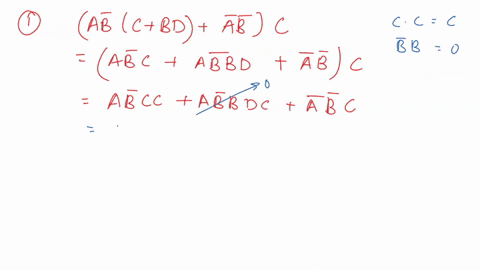 ① (AB̅ (C+BD) + A̅B̅) C
= (AB̅C + AB̅BD + A̅B̅) C
= AB̅CC + AB̅BDC + A̅B̅C
0
=
C·C = C
B̅B = 0